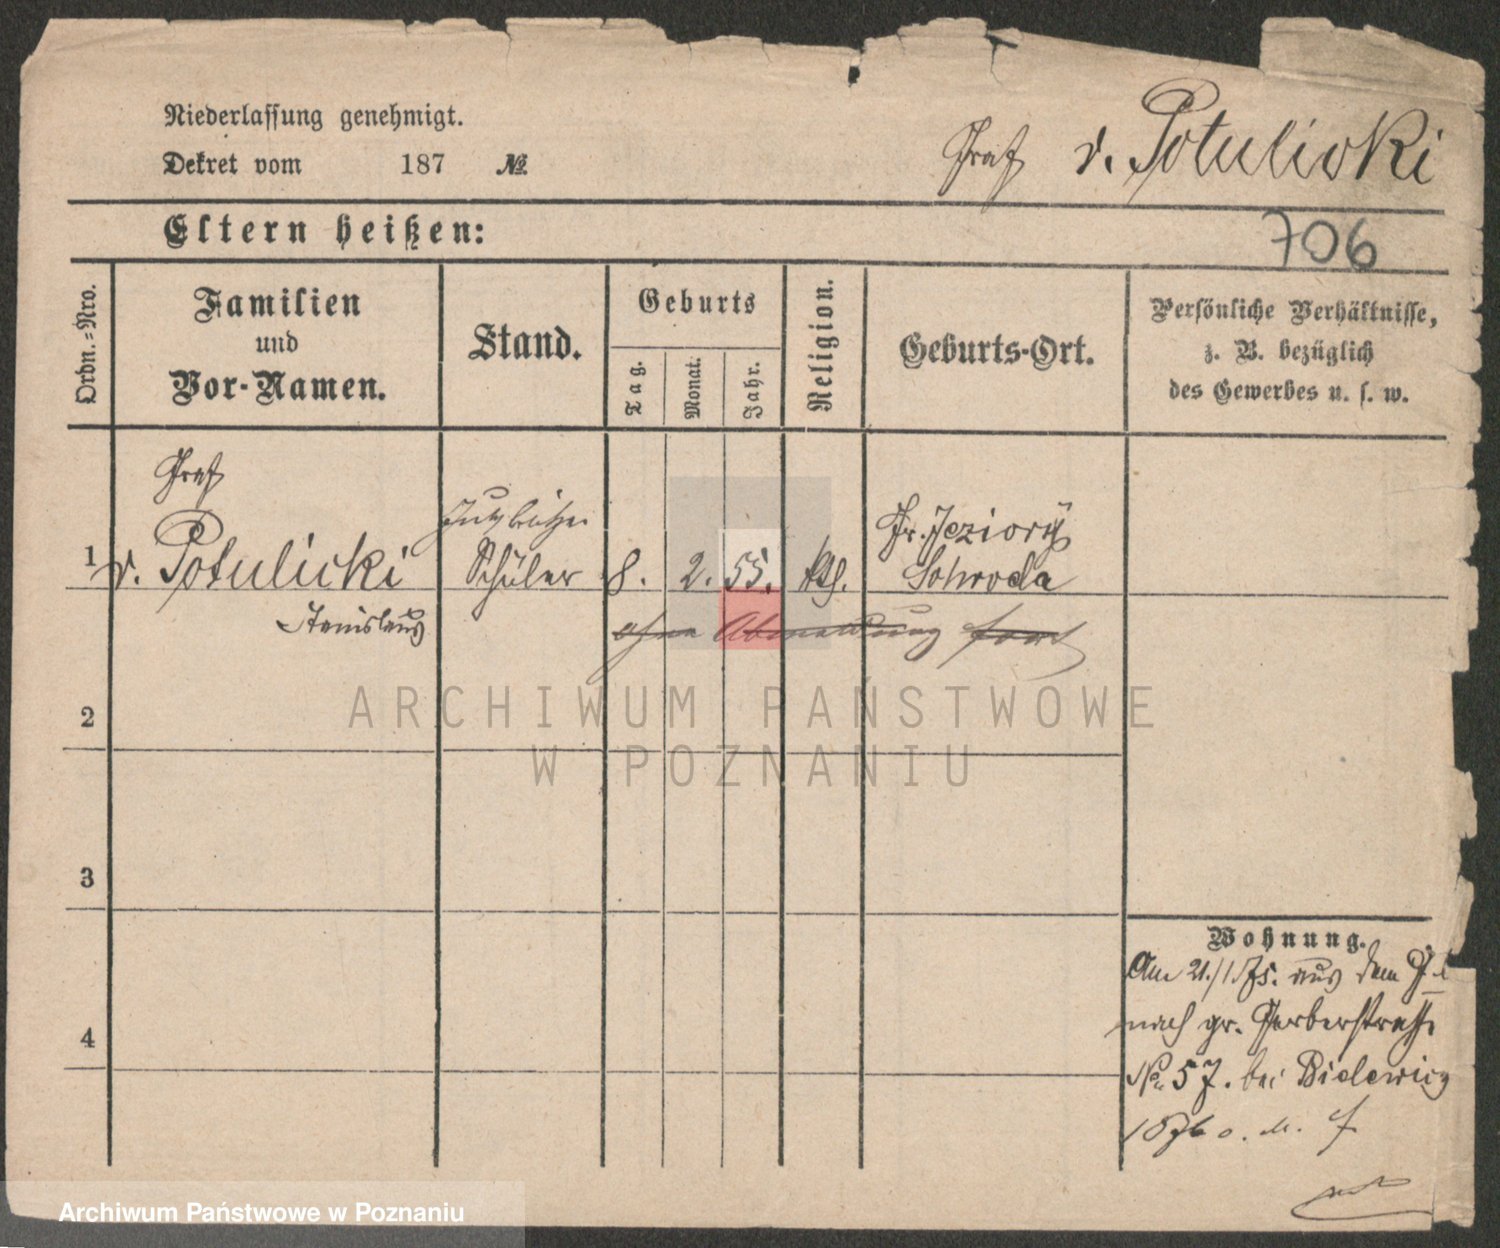 Niederlassung genehmigt.
Dekret vom 187 №
Graf v. Potulicki
Eltern heißen:
706
Ordn.=Nro.
Familien
und
Vor-Namen.
Stand.
Geburts
Tag.
Monat.
Jahr.
Religion.
Geburts-Ort.
Persönliche Verhältnisse,
z. B. bezüglich
des Gewerbes u. s. w.
Graf
1 v. Potulicki
Stanislaus
Schüler
8. 2. 55. kth.
Gr. Jeziory
Schroda
ohne Abmeldung fort
2
3
4
Wohnung.
Am 21./1.75. aus dem
nach gr. Gerberstraße
No 57. bei Bielewicz
1876 o. M. f
ARCHIWUM PAŃSTWOWE
W POZNANIU
Archiwum Państwowe w Poznaniu